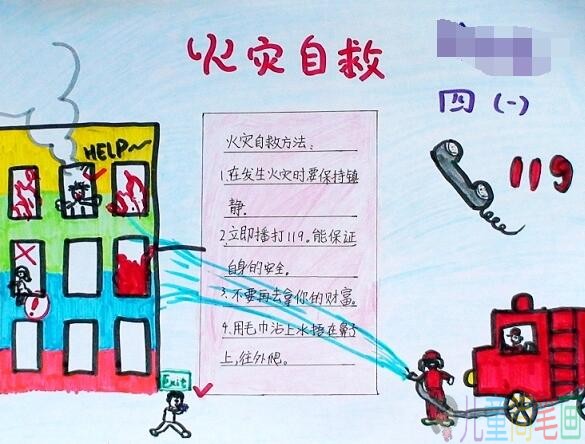 火灾自救
四(一)
HELP~
119
火灾自救方法:
1.在发生火灾时要保持镇
静.
2.立即播打119。能保证
自身的安全。
3.不要再去拿你的财富。
4.用毛巾沾上水捂在鼻子
上,往外爬。
Exit
儿童简笔画